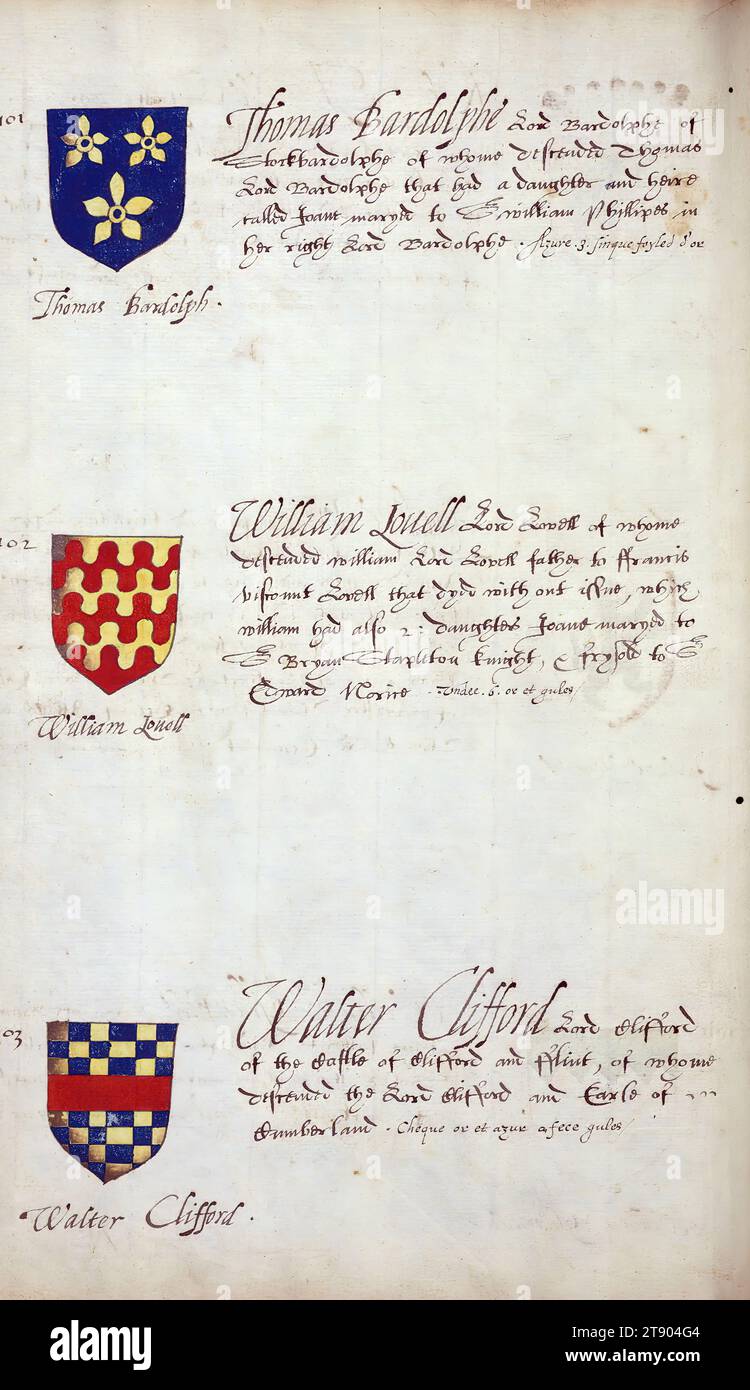 101
Thomas Bardolphe Lord Bardolphe of
Stockbardolphe of whome descended Thomas
Lord Bardolphe that had a daughter and heire
called Joane maryed to Sr William Phillipes in
her right Lord Bardolphe . Azure . 3 . sinque foyled d'or
Thomas Bardolph .
102
William Lovell Lord Lovell of whome
descended William Lord Lovell father to ffrancis
viscount Lovell that dyed with out issue, whych
william had also 2: daughters Joane maryed to
Sr Bryan Stapleton knight, & ffrysold to Sr
Edward Norice . Undee . 6 . or et gules /
William Lovell
103
Walter Clifford Lord Clifford
of the Castle of Clifford and fflint, of whome
descended the Lord Clifford and Earle of
Cumberland . Cheque or et azur a fece gules /
Walter Clifford .
alamy
alamy
alamy
Image ID: 2T904G4
www.alamy.com